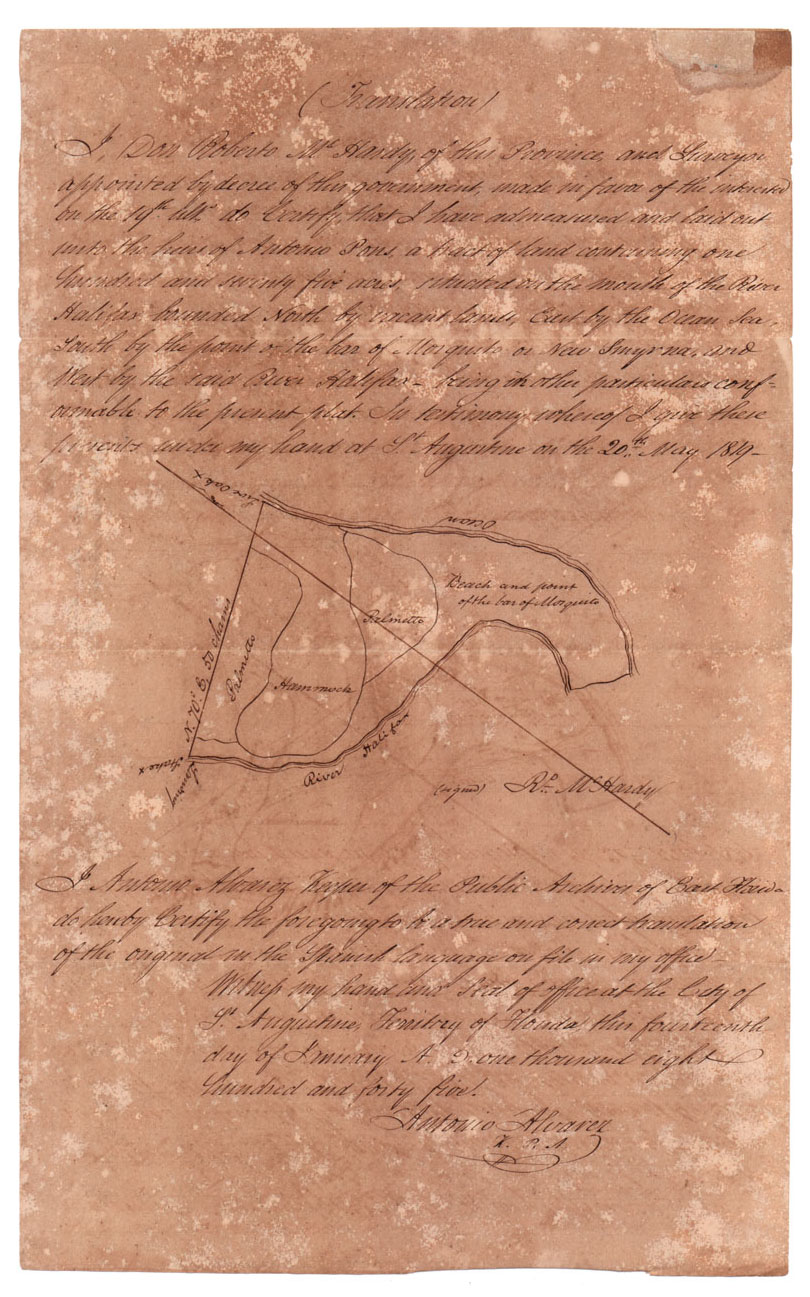 (Translation)
I, Don Roberto Mc Hardy, of this Province, and Surveyor
appointed by decree of this government, made in favor of the interested
on the 19th ulto do Certify, that I have admeasured and laid out
unto the heirs of Antonio Pons, a tract of land containing one
hundred and seventy five acres, situated on the mouth of the River
Halifax bounded North by vacant lands, East by the Ocean Sea,
South by the point of the bar of Mosquito or New Smyrna, and
West by the said River Halifax – being its other particulars conf-
ormable to the present plat. In testimony whereof I give these
presents under my hand at St. Augustine on the 20th May 1819–
Live Oak x
Ocean
Beach and point
of the bar of Mosquito
Palmetto
N. 70° E. 50 chains
Palmetto
Hammock
Stake x
River Halifax
(signed) Ro. McHardy
I Antonio Alvarez Keeper of the Public Archives of East Florida
do hereby Certify the foregoing to be a true and correct translation
of the original in the Spanish language on file in my office –
Witness my hand and Seal of office at the City of
St. Augustine, Territory of Florida this fourteenth
day of January A D one thousand eight
hundred and forty five.
Antonio Alvarez
K. P. A.